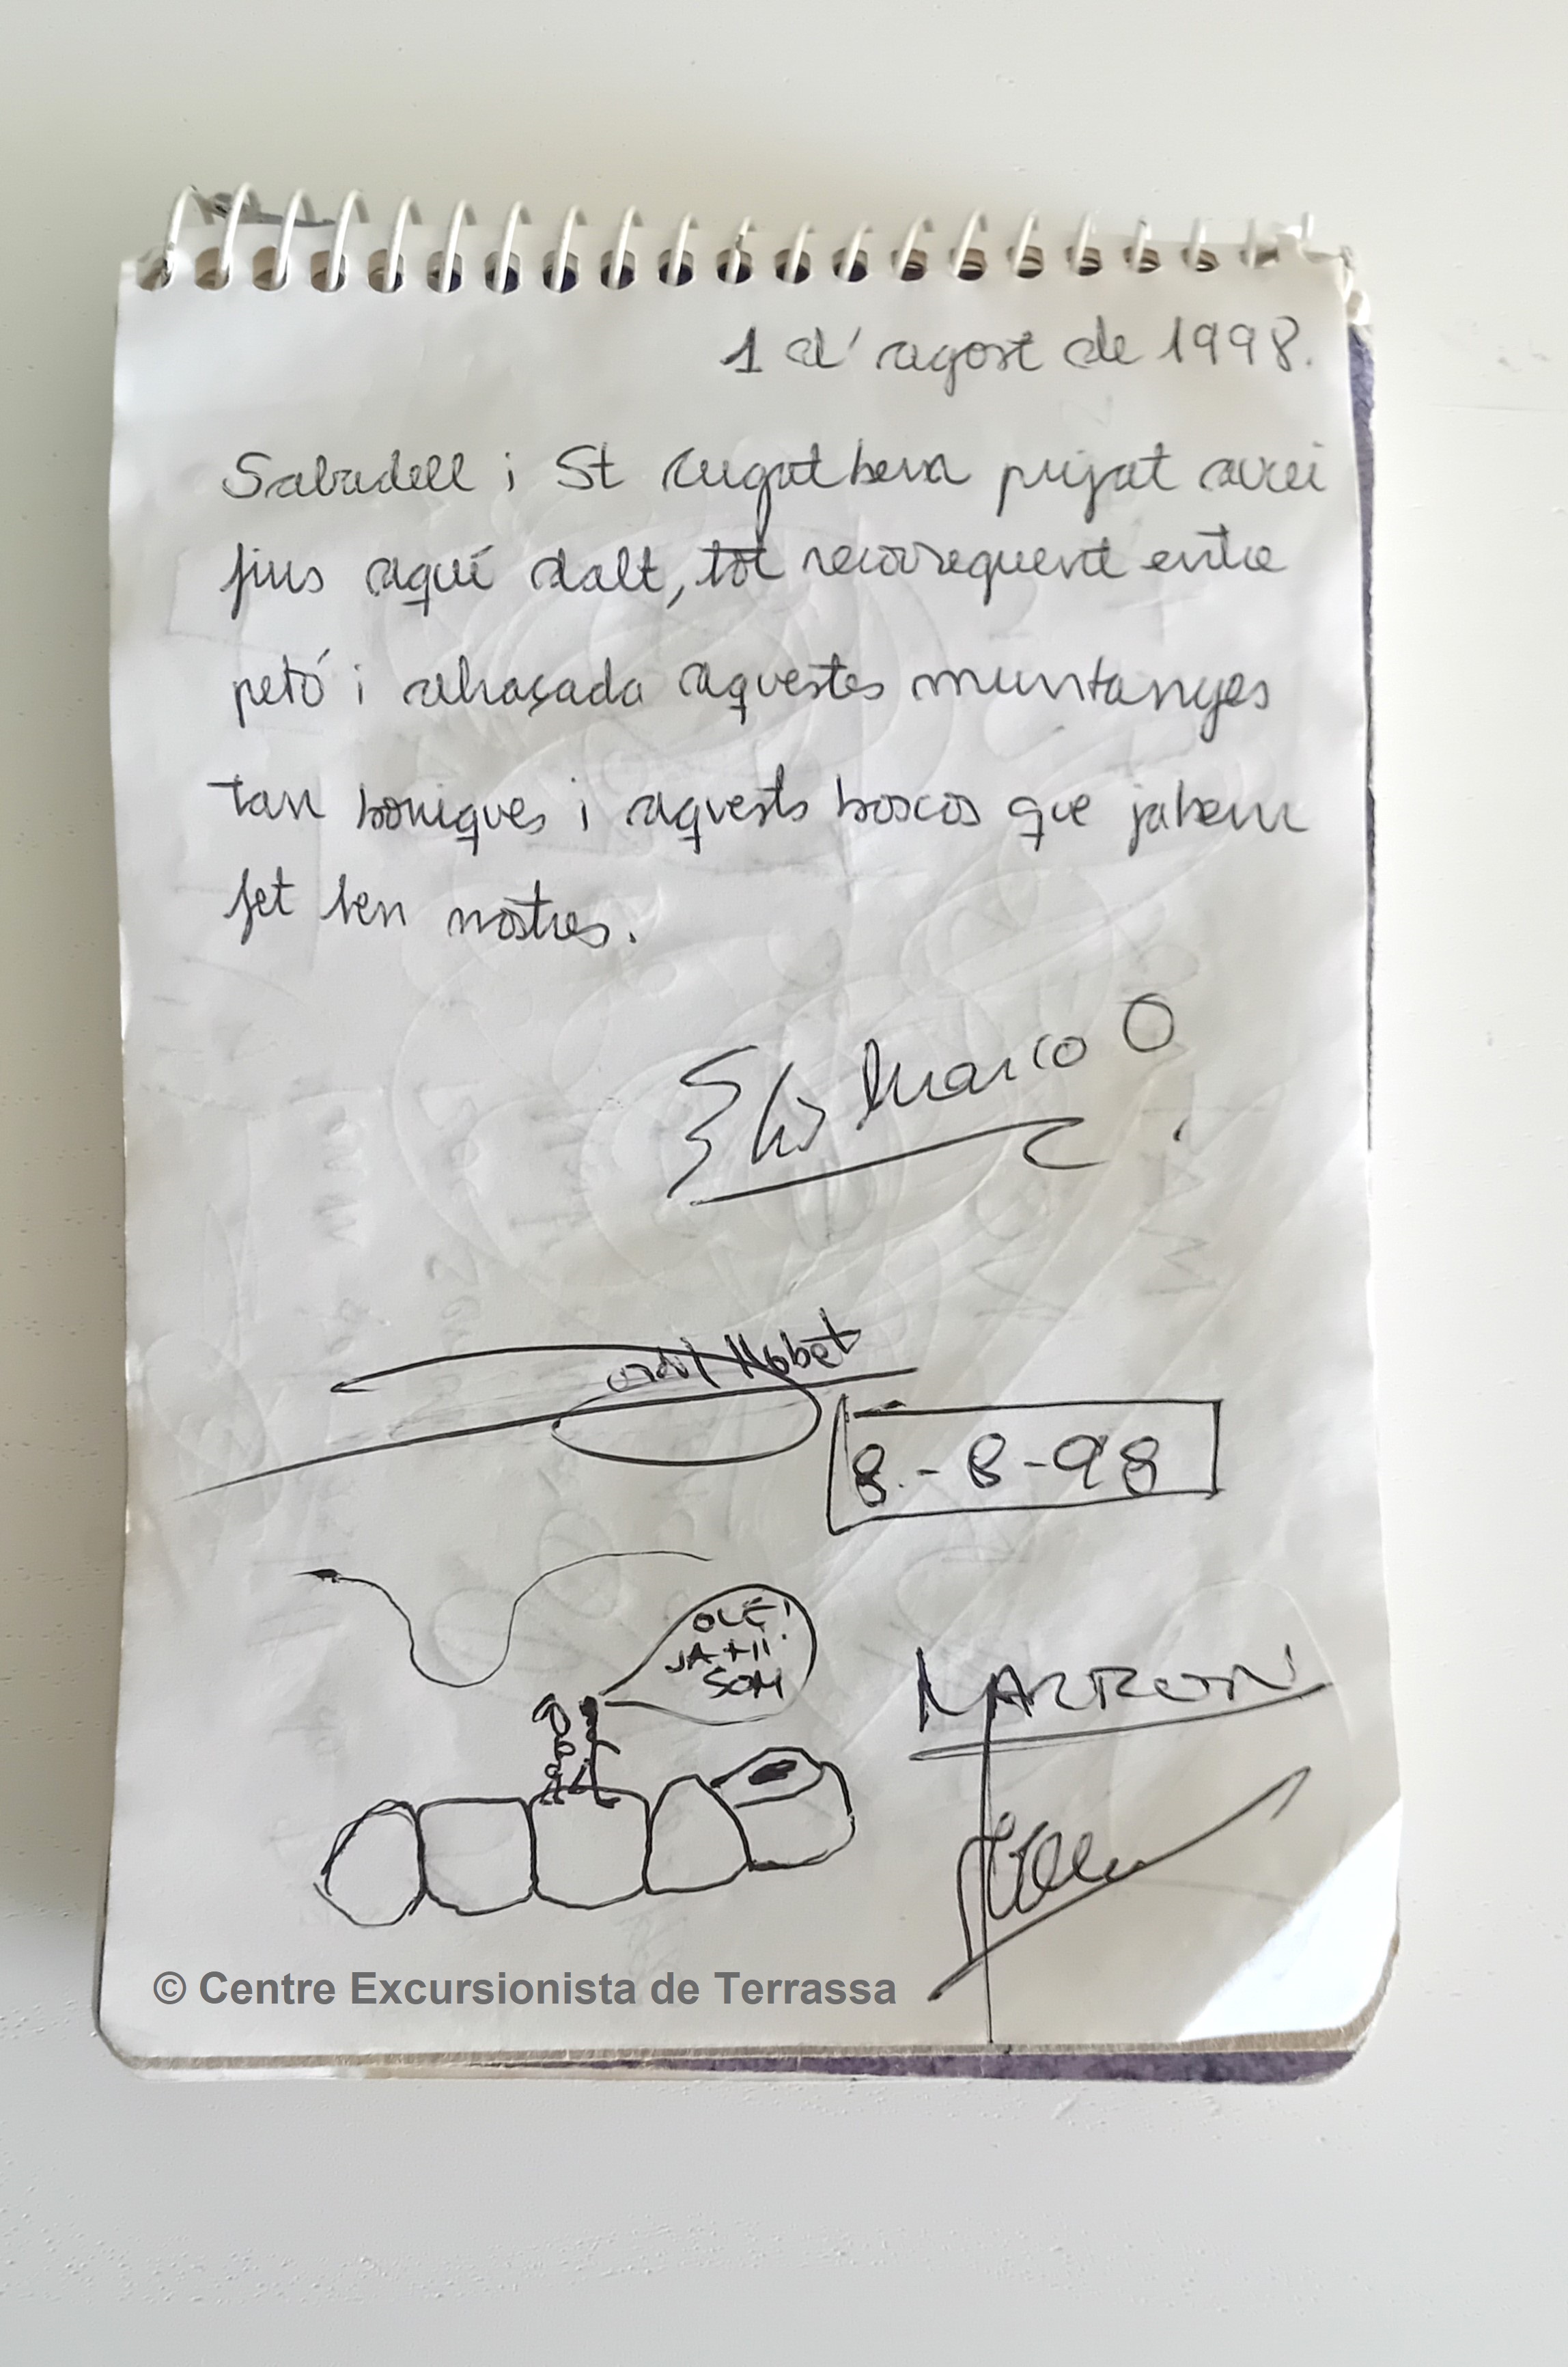 1 d'agost de 1998.
Sabadell i St Cugat hem pujat avui
fins aquí dalt, tot recorreguent entre
petó i abraçada aquestes muntanyes
tan boniques i aquests boscos que ja hem
fet ben nostres.
Marco
Jordi Llobet
8.-8-98
OLÉ!
JA HI
SOM
MARRON
© Centre Excursionista de Terrassa